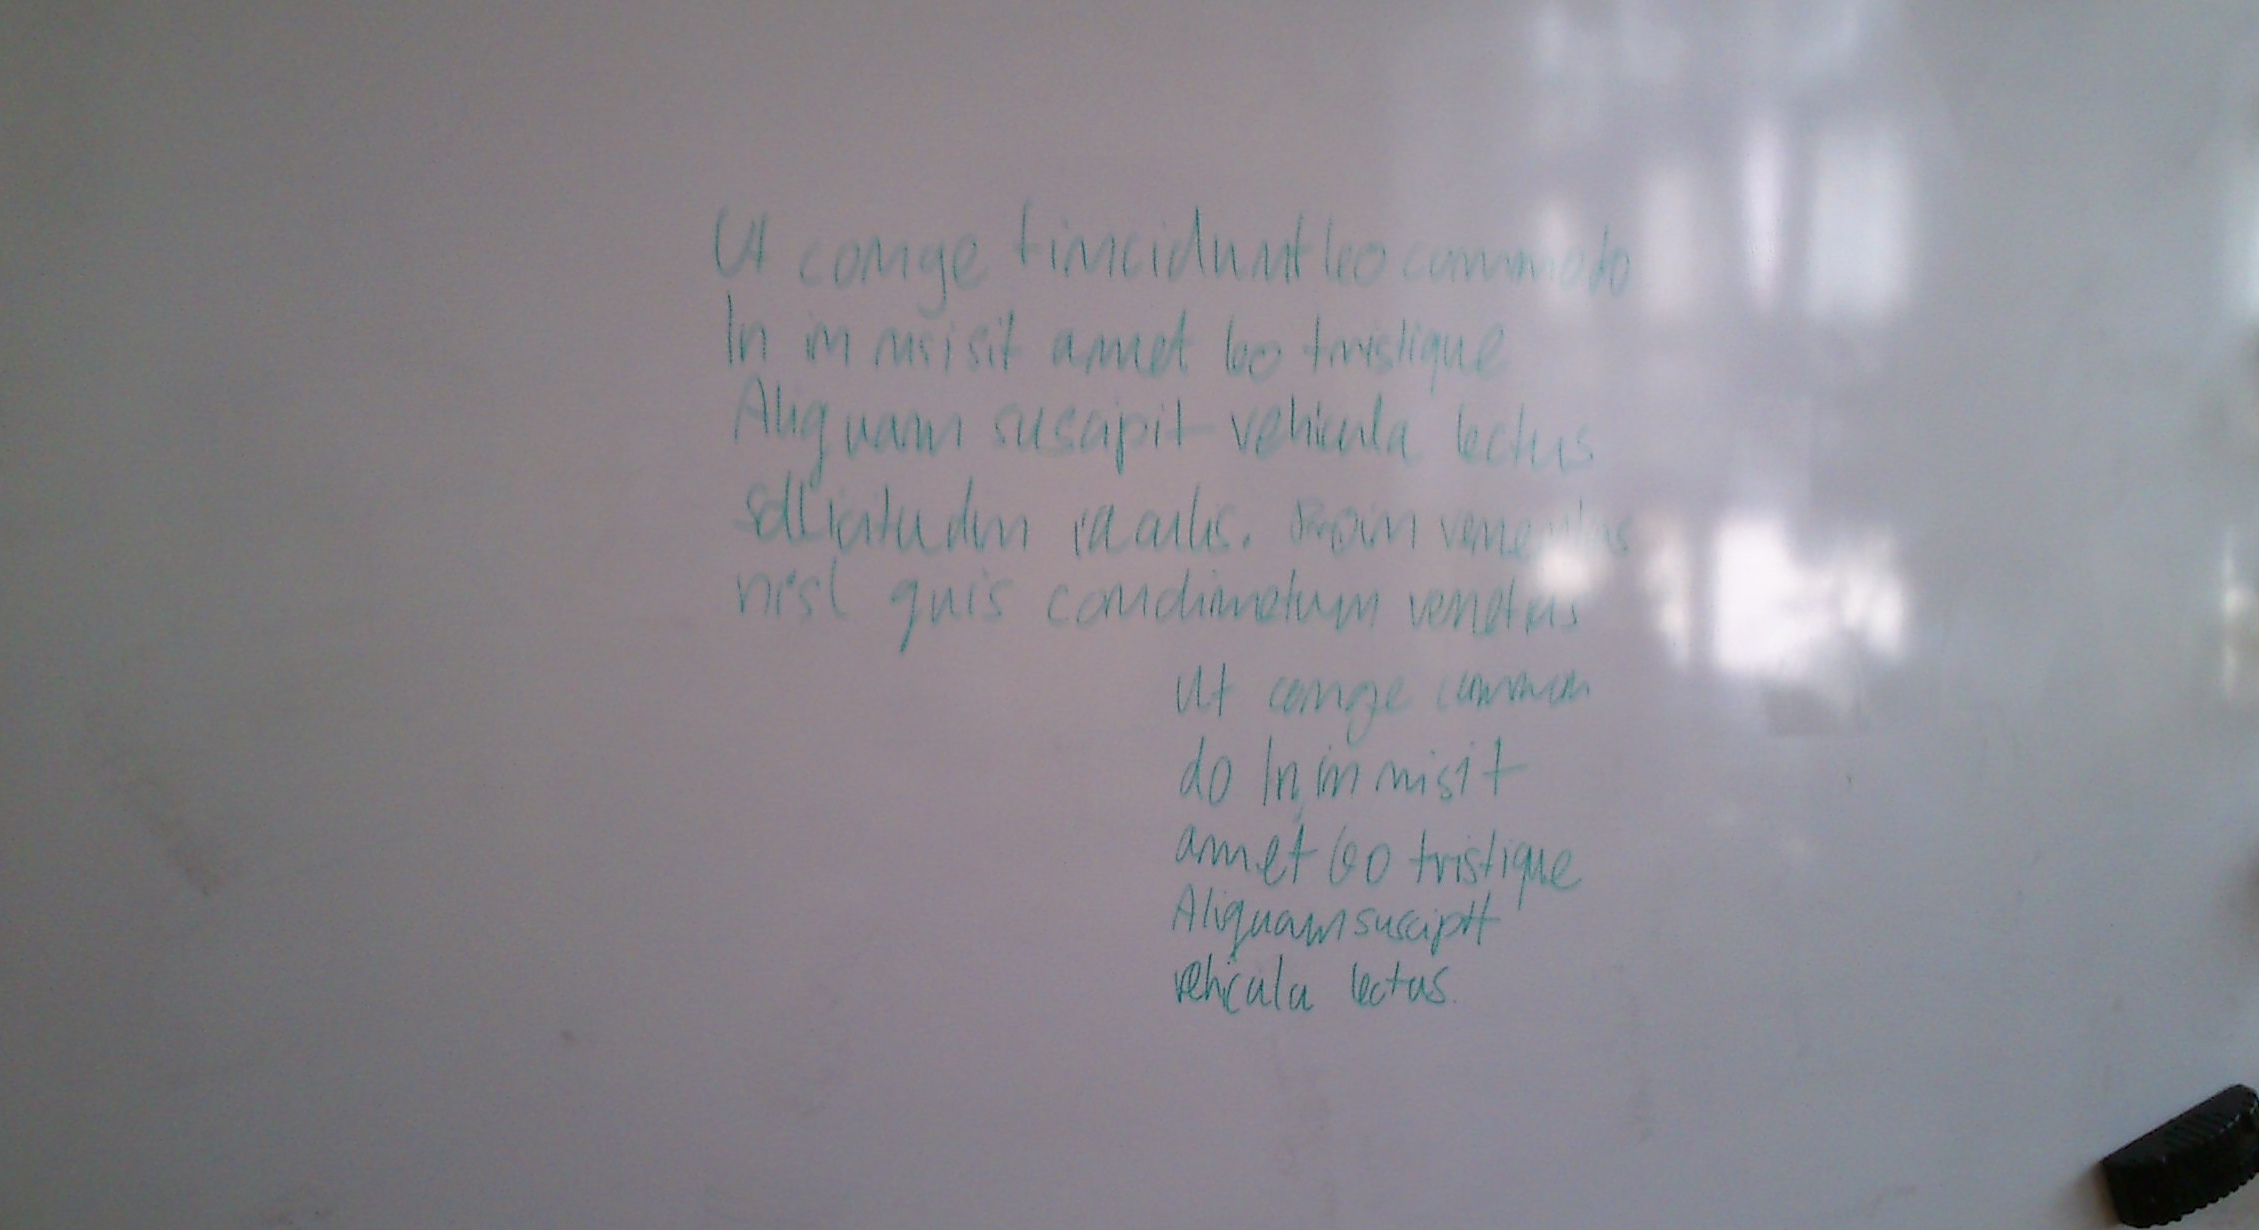 Ut conge tincidunt leo commodo
In in nisi sit amet leo tristique
Aliquam suscipit vehicula lectus
sollicitudin iaculis. Proin
nisl quis condimetum
Ut conge common
do In, in nisit
amet leo tristique
Aliquam suscipit
vehicula lectus.